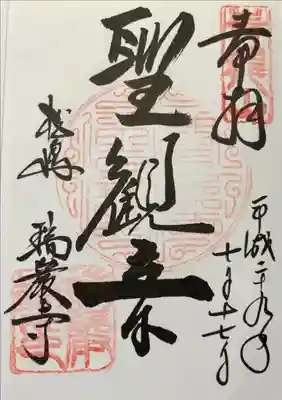 奉拝
平成二十九年
十月十七日
聖觀音
松嶋
瑞巌寺